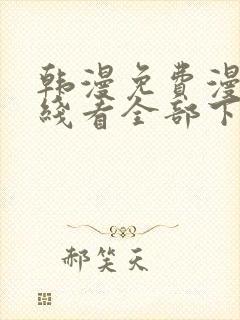 韩漫免费漫
线看全部下
郝笑天